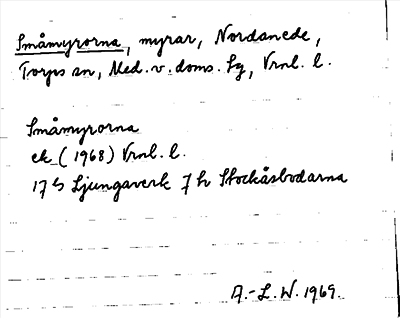 Småmyrorna, myrar, Nordanede,
Torps sn, Med. v. doms. sg, Vrnl. l.
Småmyrorna
ek (1968) Vrnl. l.
17 G Ljungaverk 7 h Stockåsbodarna
A.-L. W. 1969.